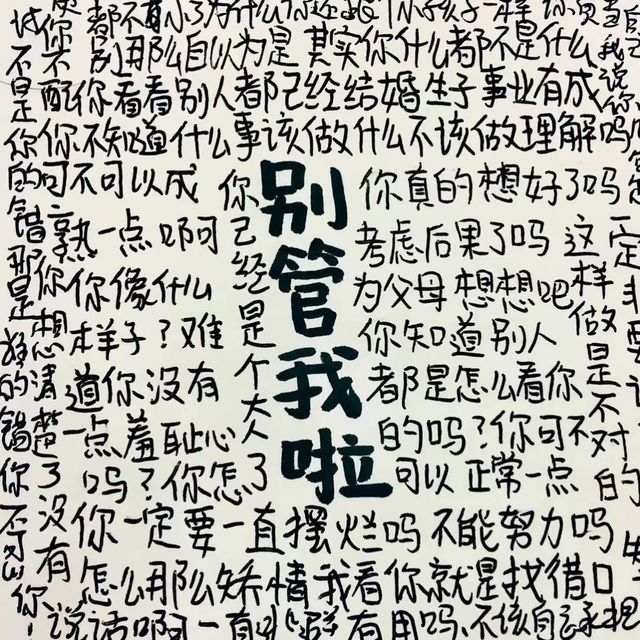 都不有
别那么自以为是 其实你什么都不是什么
配你看看别人都已经结婚生子事业有成
你不知道什么事该做什么不该做理解吗
可不可以成
熟一点啊
你像什么
样子?难
道你没有
一点羞耻心
吗?你怎了
你已经是个大人
别管我啦
你真的想好了吗
考虑后果了吗
为父母想想吧
你知道别人
都是怎么看你
的吗?你可不
可以正常一点
这样做是不对的
不是你的错那是谁的错你不
你想清楚了没有
你一定要一直摆烂吗 不能努力吗
怎么那么矫情我看你就是找借口
说话啊一直
有用吗